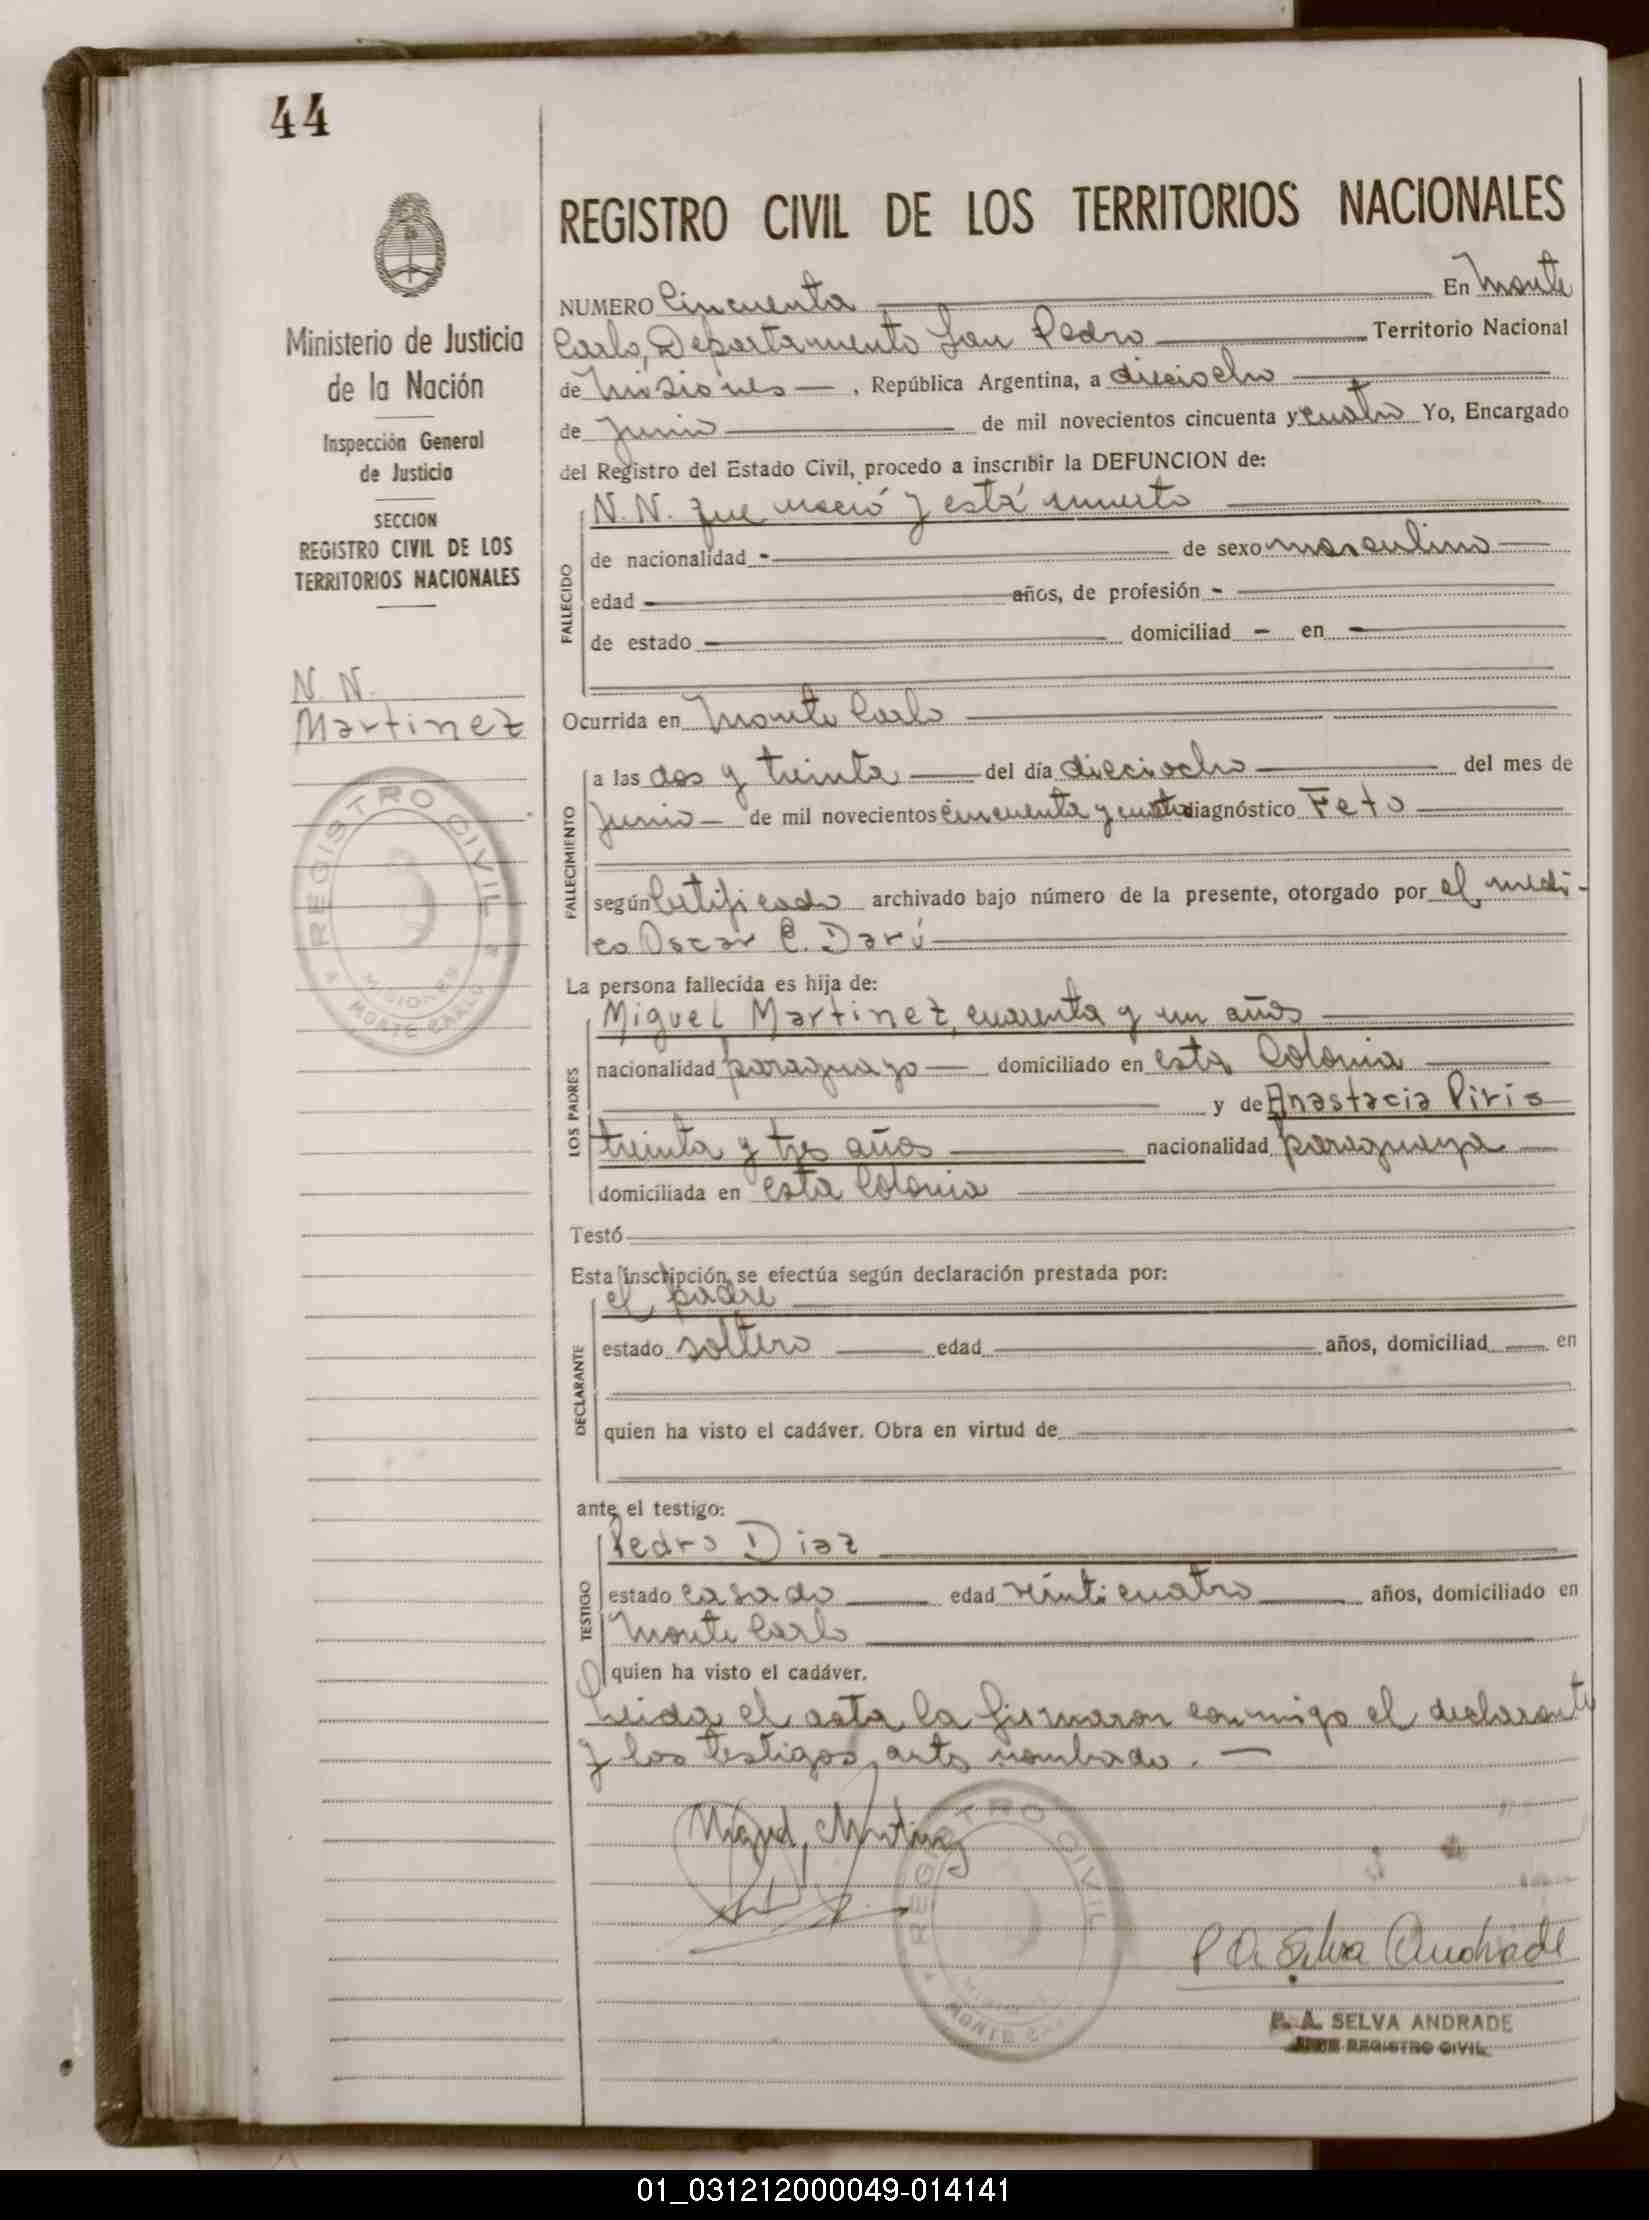 44
Ministerio de Justicia
de la Nación
Inspección General
de Justicia
SECCION
REGISTRO CIVIL DE LOS
TERRITORIOS NACIONALES
N. N.
Martinez
REGISTRO CIVIL
MISIONES
MONTE CARLO
REGISTRO CIVIL DE LOS TERRITORIOS NACIONALES
NUMERO Cincuenta En Monte
Carlo, Departamento San Pedro Territorio Nacional
de Misiones , República Argentina, a dieciocho
de Junio de mil novecientos cincuenta y cuatro Yo, Encargado
del Registro del Estado Civil, procedo a inscribir la DEFUNCION de:
FALLECIDO
N. N. que nació y está muerto
de nacionalidad - de sexo masculino
edad años, de profesión -
de estado domiciliad - en -
Ocurrida en Monte Carlo
FALLECIMIENTO
a las dos y treinta del día dieciocho del mes de
Junio de mil novecientos cincuenta y cuatro diagnóstico Feto
según Certificado archivado bajo número de la presente, otorgado por el médi-
co Oscar C. Darú
La persona fallecida es hija de:
LOS PADRES
Miguel Martinez, cuarenta y un años
nacionalidad paraguayo domiciliado en esta Colonia
y de Anastacia Piris
treinta y tres años nacionalidad paraguaya
domiciliada en esta Colonia
Testó
Esta inscripción se efectúa según declaración prestada por:
DECLARANTE
el padre
estado soltero edad años, domiciliad en
quien ha visto el cadáver. Obra en virtud de
ante el testigo:
TESTIGO
Pedro Diaz
estado casado edad veinticuatro años, domiciliado en
Monte Carlo
quien ha visto el cadáver.
Leida el acta la firmaron conmigo el declarante
y los testigos, ante nombrado. —
Miguel Martinez
REGISTRO CIVIL
MONTE CARLO
P A Selva Andrade
P. A. SELVA ANDRADE
JEFE REGISTRO CIVIL
01_031212000049-014141